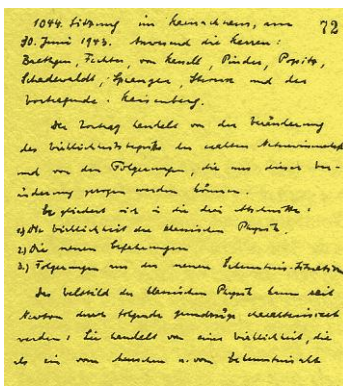 72
1044. Sitzung im Harnackhaus, am
30. Juni 1943. Anwesend die Herren:
Baethgen, Fechter, von Hassell, Pinder, Popitz,
Schadewaldt, Spranger, Stroux und der
Vortragende. Heisenberg.
Der Vortrag handelt von der Veränderung
des Wirklichkeitsbegriffs der exakten Naturwissenschaft
und von den Folgerungen, die aus dieser Ver-
änderung gezogen werden können.
Er gliedert sich in die drei Abschnitte:
1) Die Wirklichkeit der klassischen Physik.
2) Die neuen Erfahrungen
3.) Folgerungen aus der neuen Erkenntnis-Situation
Das Weltbild der klassischen Physik kann seit
Newton durch folgende Grundzüge charakterisiert
werden: Sie handelt von einer Wirklichkeit, die
als ein vom Menschen u. vom Erkenntnisakt